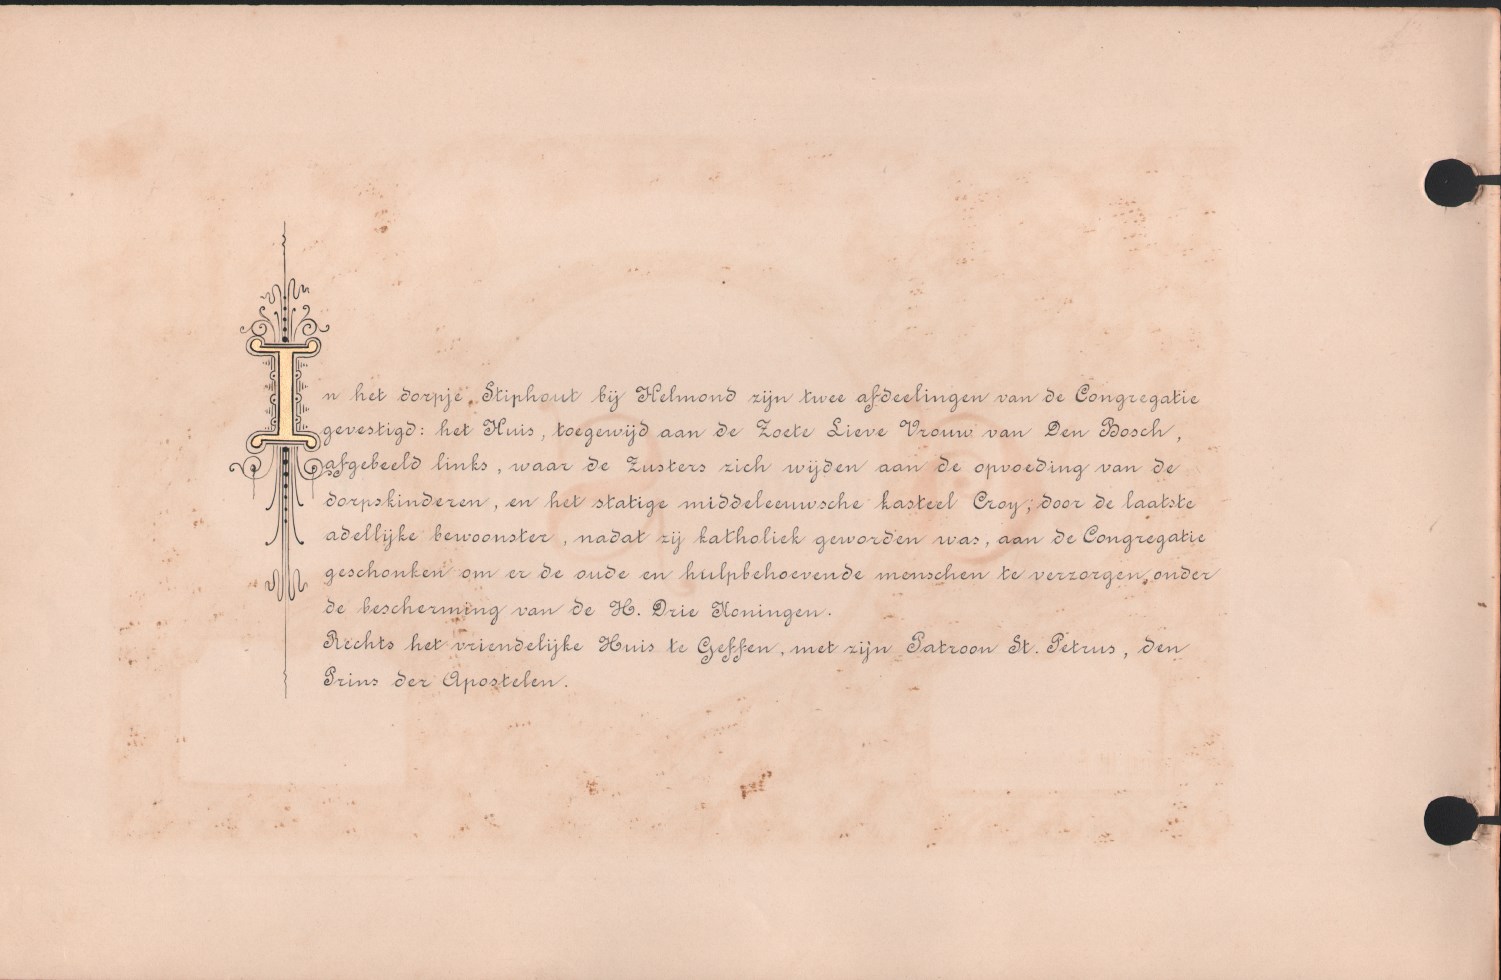 In het dorpje Stiphout bij Helmond zijn twee afdeelingen van de Congregatie
gevestigd: het Huis, toegewijd aan de Zoete Lieve Vrouw van Den Bosch,
afgebeeld links, waar de Zusters zich wijden aan de opvoeding van de
dorpskinderen, en het statige middeleeuwsche kasteel Croy; door de laatste
adellijke bewoonster, nadat zij katholiek geworden was, aan de Congregatie
geschonken om er de oude en hulpbehoevende menschen te verzorgen, onder
de bescherming van de H. Drie Koningen.
Rechts het vriendelijke Huis te Geffen, met zijn Patroon St. Petrus, den
Prins der Apostelen.